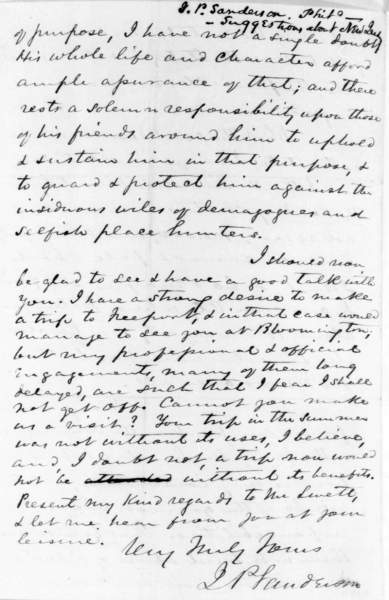 J. P. Sanderson. Phila
- Suggestions about New Jersey
of purpose, I have not a single doubt
His whole life and character afford
ample assurance of that; and there
rests a solemn responsibility upon those
of his friends around him to uphold
& sustain him in that purpose, &
to guard & protect him against the
insiduous wiles of demagogues and
selfish place hunters.
I should now
be glad to see & have a good talk with
you. I have a strong desire to make
a trip to Freeport, & in that case would
manage to see you at Bloomington;
but my professional & official
engagements, many of them long
delayed, are such that I fear I shall
not get off. Cannot you make
us a visit? Your trip in the summer
was not without its uses, I believe,
and, I doubt not, a trip now would
not be attended without its benefits.
Present my kind regards to Mr
& let me hear from you at your
leisure.
Very Truly Yours
J P Sanderson